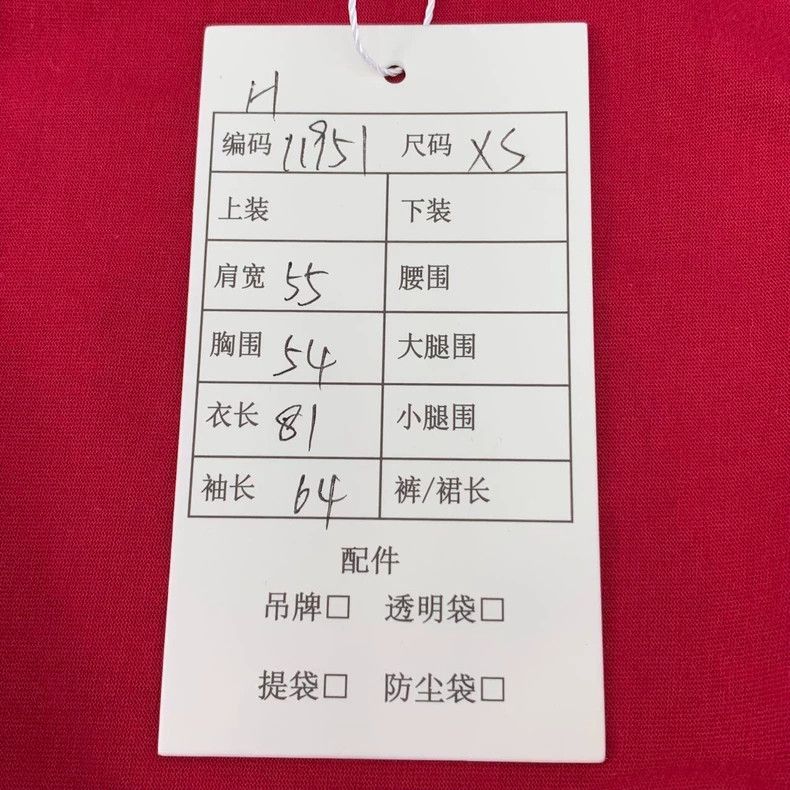 H
编码 11951 尺码 XS
上装 下装
肩宽 55 腰围
胸围 54 大腿围
衣长 81 小腿围
袖长 64 裤/裙长
配件
吊牌□ 透明袋□
提袋□ 防尘袋□